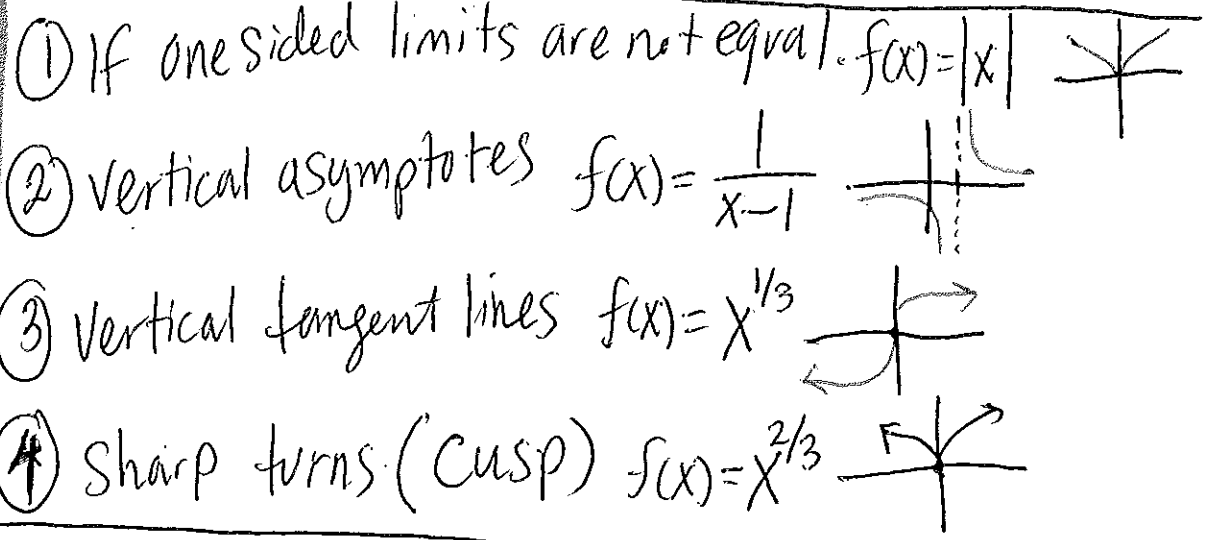 ① If one sided limits are not equal. f(x)=|x|
② vertical asymptotes f(x)=1/(x-1)
③ Vertical tangent lines f(x)=x^1/3
④ Sharp turns (Cusp) f(x)=x^2/3